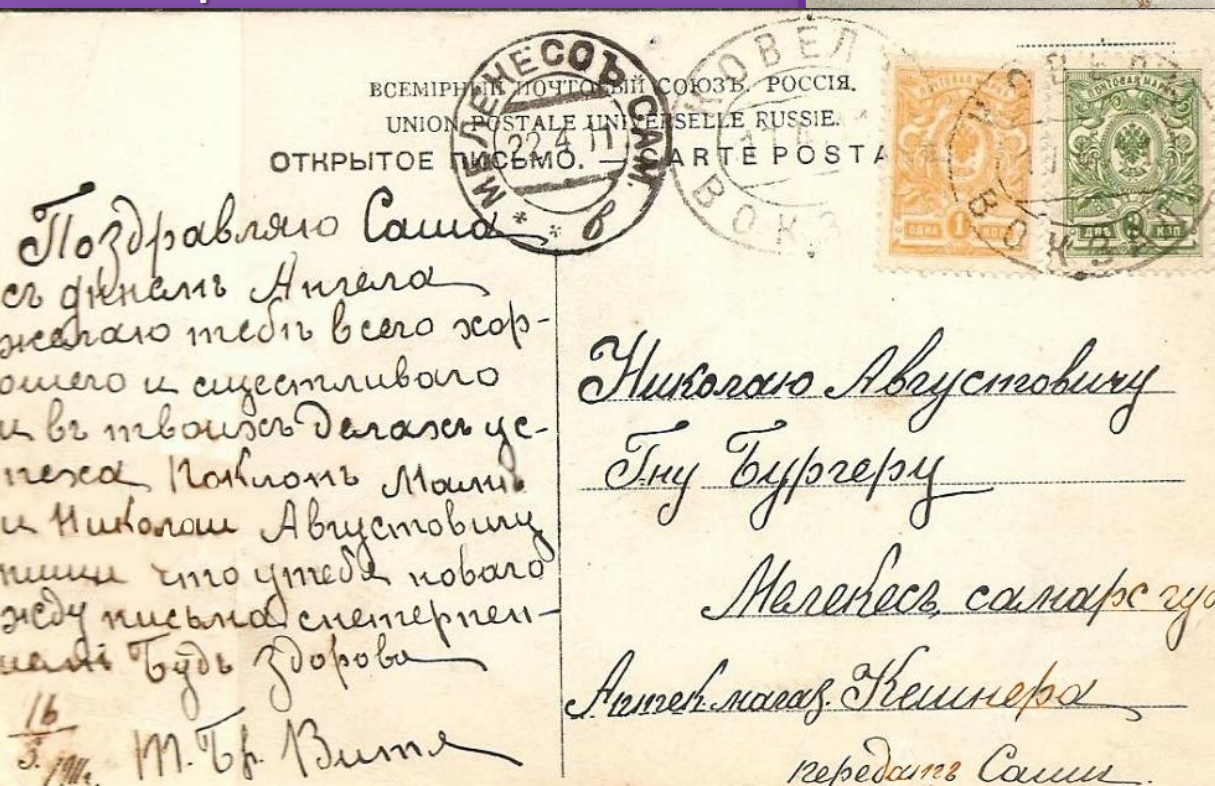 ВСЕМІРНЫЙ ПОЧТОВЫЙ СОЮЗЪ. РОССІЯ.
UNION POSTALE UNIVERSELLE RUSSIE.
ОТКРЫТОЕ ПИСЬМО. — CARTE POSTA
МЕЛЕКЕСОЪ САМ.
22.4.11
в
КОВЕЛЬ
ВОКЗ
КОВЕЛ
ВОКЗАЛ
ПОЧТОВАЯ МАРКА
ОДНА 1 КОП
ПОЧТОВАЯ МАРКА
ДВѢ 2 КОП
Поздравляю Саша
съ днемъ Ангела
желаю тебѣ всего хор-
ошего и сщестливаго
и въ твоихъ делахъ ус-
пеха Поклонъ Мани
и Николаи Августовичу
пиши что утебя новаго
жду письма снетерпен-
Будь здорова
16
3. 1911г.
Т. Бр. Витя
Николаю Августовичу
Гну Бургеру
Мелекесъ самарс губ
Аптек. магаз. Кешнера
передать Саши.